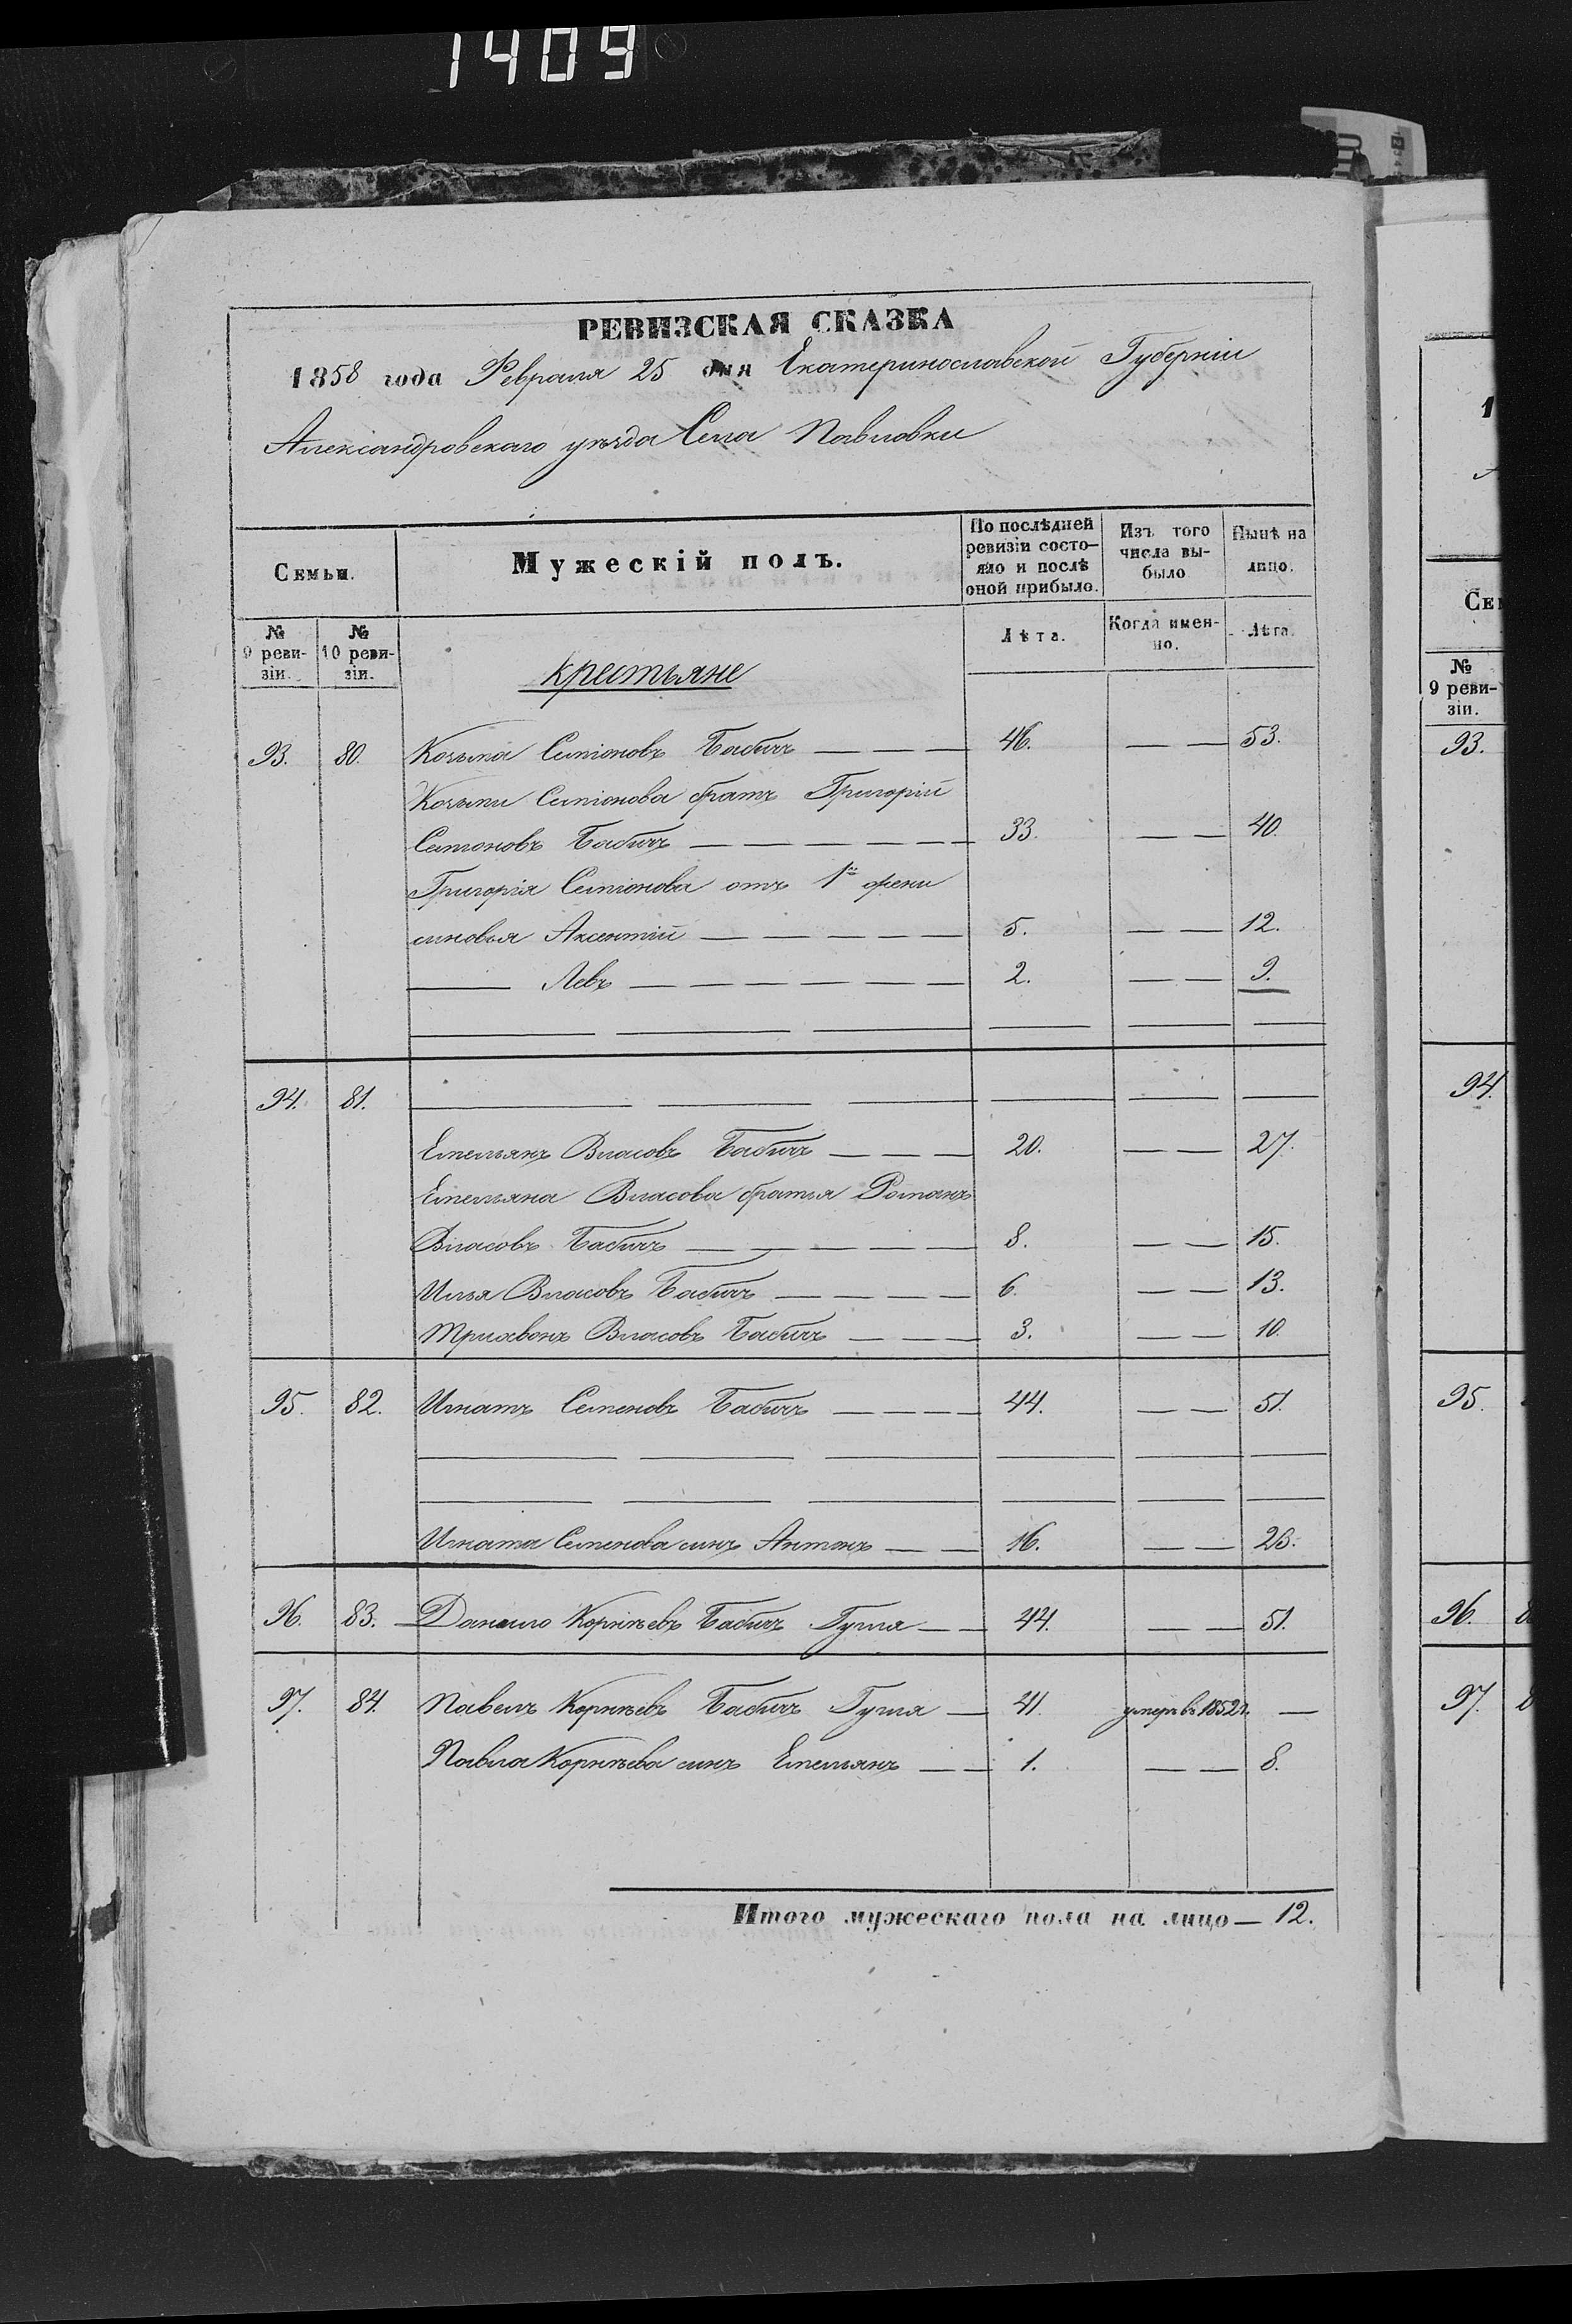 1409
РЕВИЗСКАЯ СКАЗКА
1858 года Февраля 25 дня Екатеринославской Губерніи
Александровскаго уѣзда Села Павловки
Семьи.
Мужескій полъ.
По послѣдней ревизіи состояло и послѣ оной прибыло.
Изъ того числа выбыло
Нынѣ на лицо.
№ 9 ревизіи.
№ 10 ревизіи.
Лѣта.
Когда именно.
Лѣта.
крестьяне
93. 80. Козьма Симіоновъ Бабичъ — — — 46. — — 53.
Козьмы Симіонова братъ Григорій
Симіоновъ Бабичъ — — — — — — 33. — — 40.
Григорія Симіонова отъ 1й жены
сыновья Аксентій — — — — — 5. — — 12.
— Левъ — — — — — — — 2. — — 9.
94. 81.
Емельянъ Власовъ Бабичъ — — — 20. — — 27.
Емельяна Власова братья Романъ
Власовъ Бабичъ — — — — — — 8. — — 15.
Илья Власовъ Бабичъ — — — — 6. — — 13.
Трифонъ Власовъ Бабичъ — — — 3. — — 10.
95. 82. Игнатъ Семеновъ Бабичъ — — — — 44. — — 51.
Игната Семенова сынъ Антонъ — — 16. — — 23.
96. 83. Данило Корнѣевъ Бабичъ Гугля — — 44. — — 51.
97. 84. Павелъ Корнѣевъ Бабичъ Гугля — 41. умеръ въ 1852 г. —
Павла Корнѣева сынъ Емельянъ — — 1. — — 8.
Итого мужескаго пола на лицо — 12.
1
Сем
№ 9 ревизіи.
93.
94.
95.
96. 8
97. 8